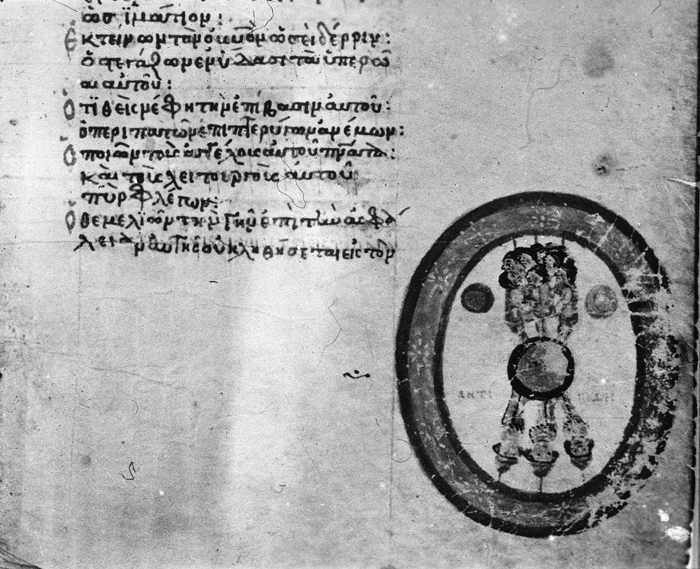 ὡς ἱμάτιον:
ἐκτείνων τὸν οὐνὸν ὡσεὶ δέρριν:
ὁ στεγάζων ἐν ὕδασι τὰ ὑπερῶ
α αὐτοῦ:
ὁ τιθεὶς νέφη τὴν ἐπίβασιν αὐτοῦ:
ὁ περιπατῶν ἐπὶ πτερύγων ἀνέμων:
ὁ ποιῶν τοὺς ἀγγέλους αὐτοῦ πνατα:
καὶ τοὺς λειτουργοὺς αὐτοῦ
πῦρ φλέγον:
ὁ θεμελιῶν τὴν γῆν ἐπὶ τὴν ἀσφά
λειαν αὐτῆς οὐ κλιθήσεται εἰς τὸν
ΑΝΤΙ